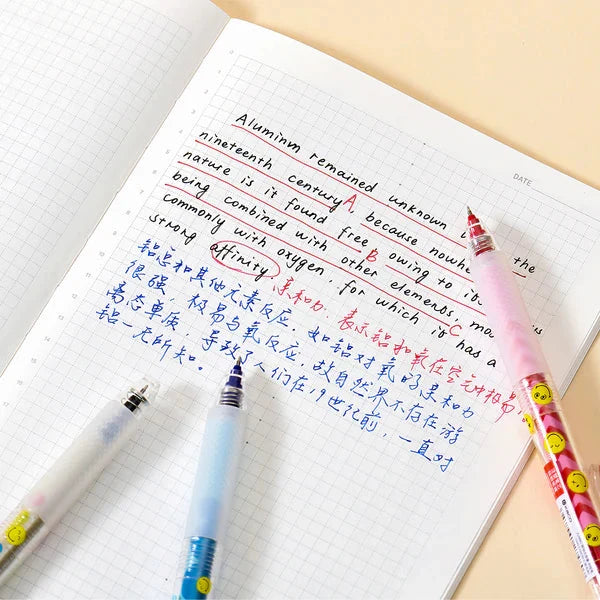 DATE
Aluminum remained unknown the
nineteenth century A, because nowhe
nature is it found free B, owing to its
being combined with other elements, mo
commonly with oxygen, for which it has a C
strong affinity.
亲和力.表示铝和氧在空气中极易
铝总和其他元素反应.如铝对氧的亲和力
很强,极易与氧反应,故自然界不存在游
离态单质.导致了人们在19世纪前,一直对
铝一无所知。